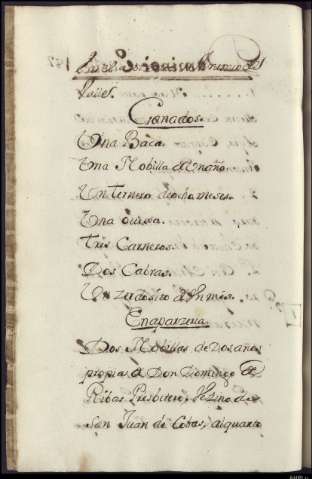 Valles.
Ganados.
Una Baca.
Una Nobilla de Un año.
Un ternero de ocho meses.
Una obeja.
tres Carneros.
Dos Cabras.
Un zerdosito de Un mes.
En aparzeria
Dos Nobillas de dos años
propias de Don Domingo de
Ribas Presbitero, Vezino de
San Juan de Cobas, a la quarta